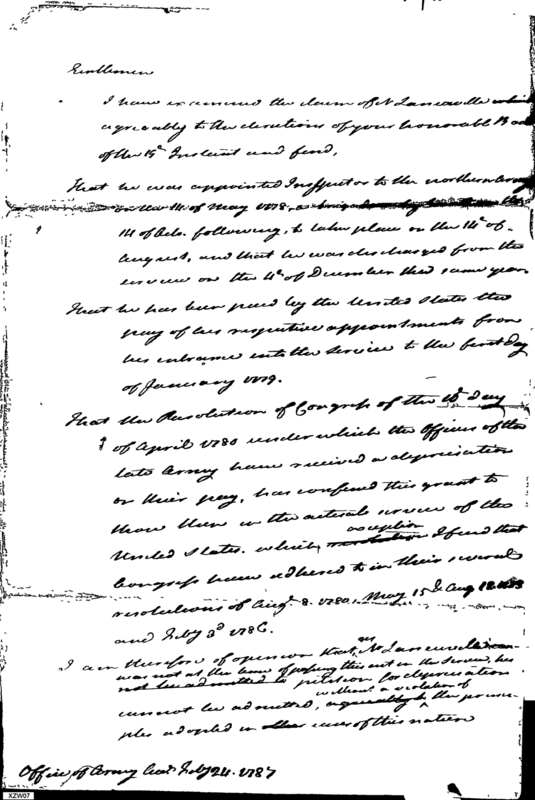 Gentlemen
I have examined the claim of Mr Laneuville which
agreeably to the directions of your honorable Board
of the 15th Instant and find,
That he was appointed Inspector to the northern Army
on the 14 of May 1778, a brigadier by brevet on the
14 of Octo. following, to take place on the 14th of
August, and that he was discharged from the
service on the 4th of December the same year
That he has been paid by the United States the
pay of his respective appointments from
his entrance into the service to the first day
of January 1779.
That the Resolution of Congress of the 10th day
of April 1780 under which the Officers of the
late Army have received a depreciation
on their pay, has confined this grant to
those then in the actual service of the
United States. which exception I find that
Congress have adhered to in their several
resolutions of Augt. 8. 1780, May 15th & Aug 12
and Feby 3d 1786.
I am therefore of opinion that, as Mr Laneuville
was not at the time of passing this act in the Service, his
petition for depreciation
cannot be admitted, without a violation of the princi-
ples adopted in cases of this nature
Office of Army Acct. Feby 24. 1787
XZW07